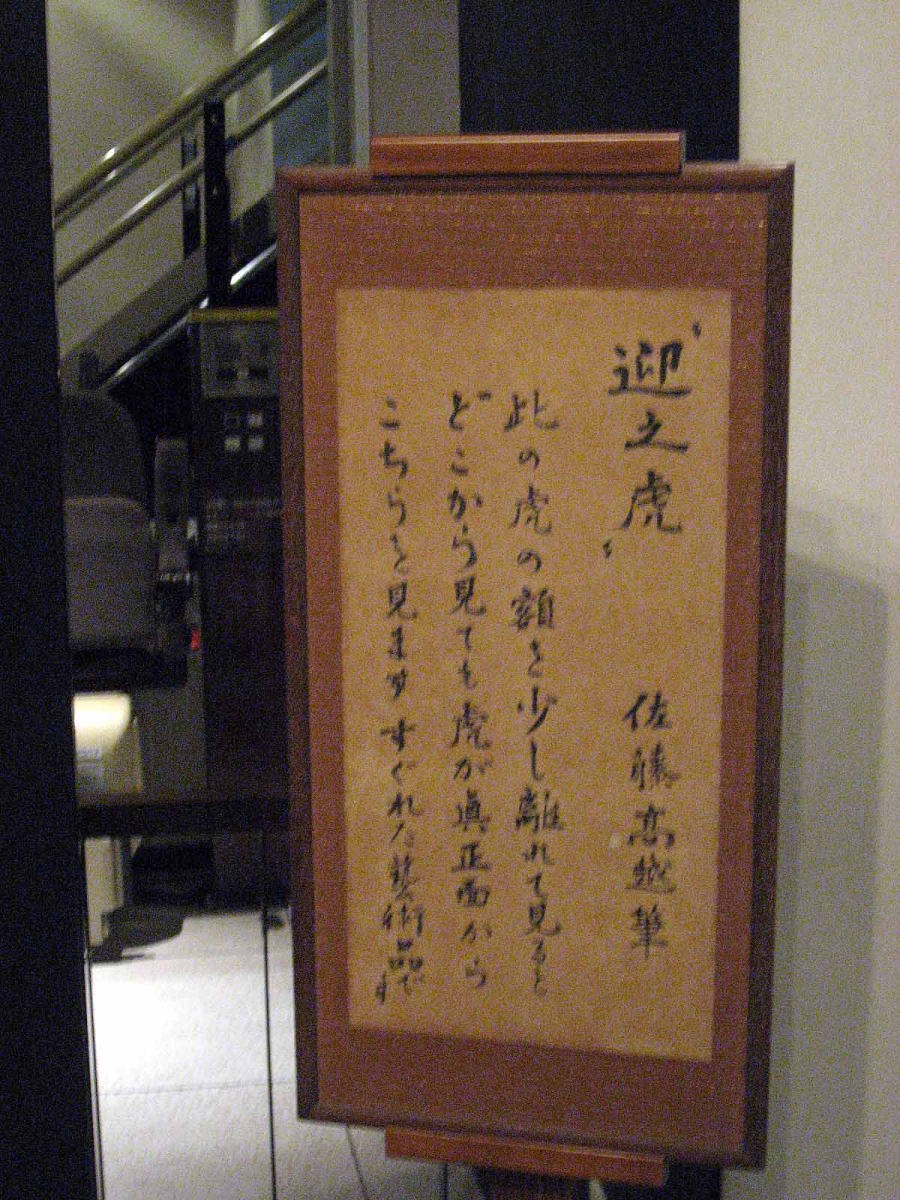 〝迎之虎〟 佐藤高越筆
此の虎の額を少し離れて見ると
どこから見ても虎が眞正面から
こちらを見ます すぐれた藝術品です